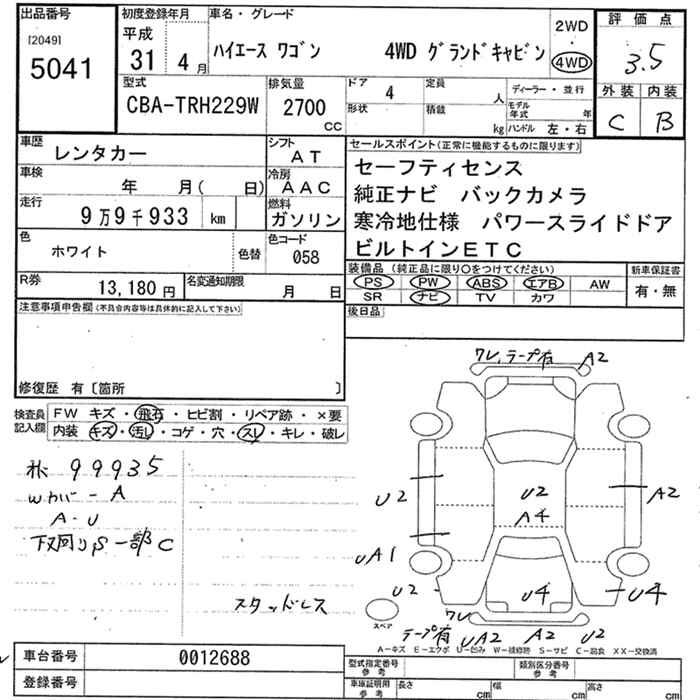 出品番号
[2049]
5041
初度登録年月
平成
31 4 月
車名・グレード
ハイエース ワゴン 4WD グランドキャビン
2WD
・
4WD
評価点
3.5
外装 内装
C B
型式
CBA-TRH229W
排気量
2700
CC
ドア 4
形状
定員 人
積載 kg
ディーラー・並行
モデル年式 年
ハンドル 左・右
車歴
レンタカー
シフト
AT
車検
年 月( 日)
冷房
AAC
走行
9万9千933 km
燃料
ガソリン
色
ホワイト
色替
色コード
058
R券
13,180 円
名変通知期限
月 日
セールスポイント(正常に機能するものに限ります)
セーフティセンス
純正ナビ バックカメラ
寒冷地仕様 パワースライドドア
ビルトインETC
装備品(純正品に限り○をつけてください)
PS PW ABS エアB AW
SR ナビ TV カワ
新車保証書
有・無
後日品
注意事項申告欄(不具合内容等は具体的に記入して下さい)
修復歴 有〔箇所 〕
検査員記入欄
FW キズ・飛石・ヒビ割・リペア跡・×要
内装 キズ・汚レ・コゲ・穴・スレ・キレ・破レ
99935
Wカバー A
A・U
下回りS一部C
スタッドレス
ワレ,テープ有 A2
U2
U2
A4
A2
UA1
U2
U4
U4
ワレ
テープ有 UA2 A2 U2
スペア
A-キズ E-エクボ U-凹み W-補修跡 S-サビ C-腐食 XX-交換済
車台番号
0012688
登録番号
型式指定番号
参考
類別区分番号
参考
車庫証明用
参考
長さ cm
幅 cm
高さ cm